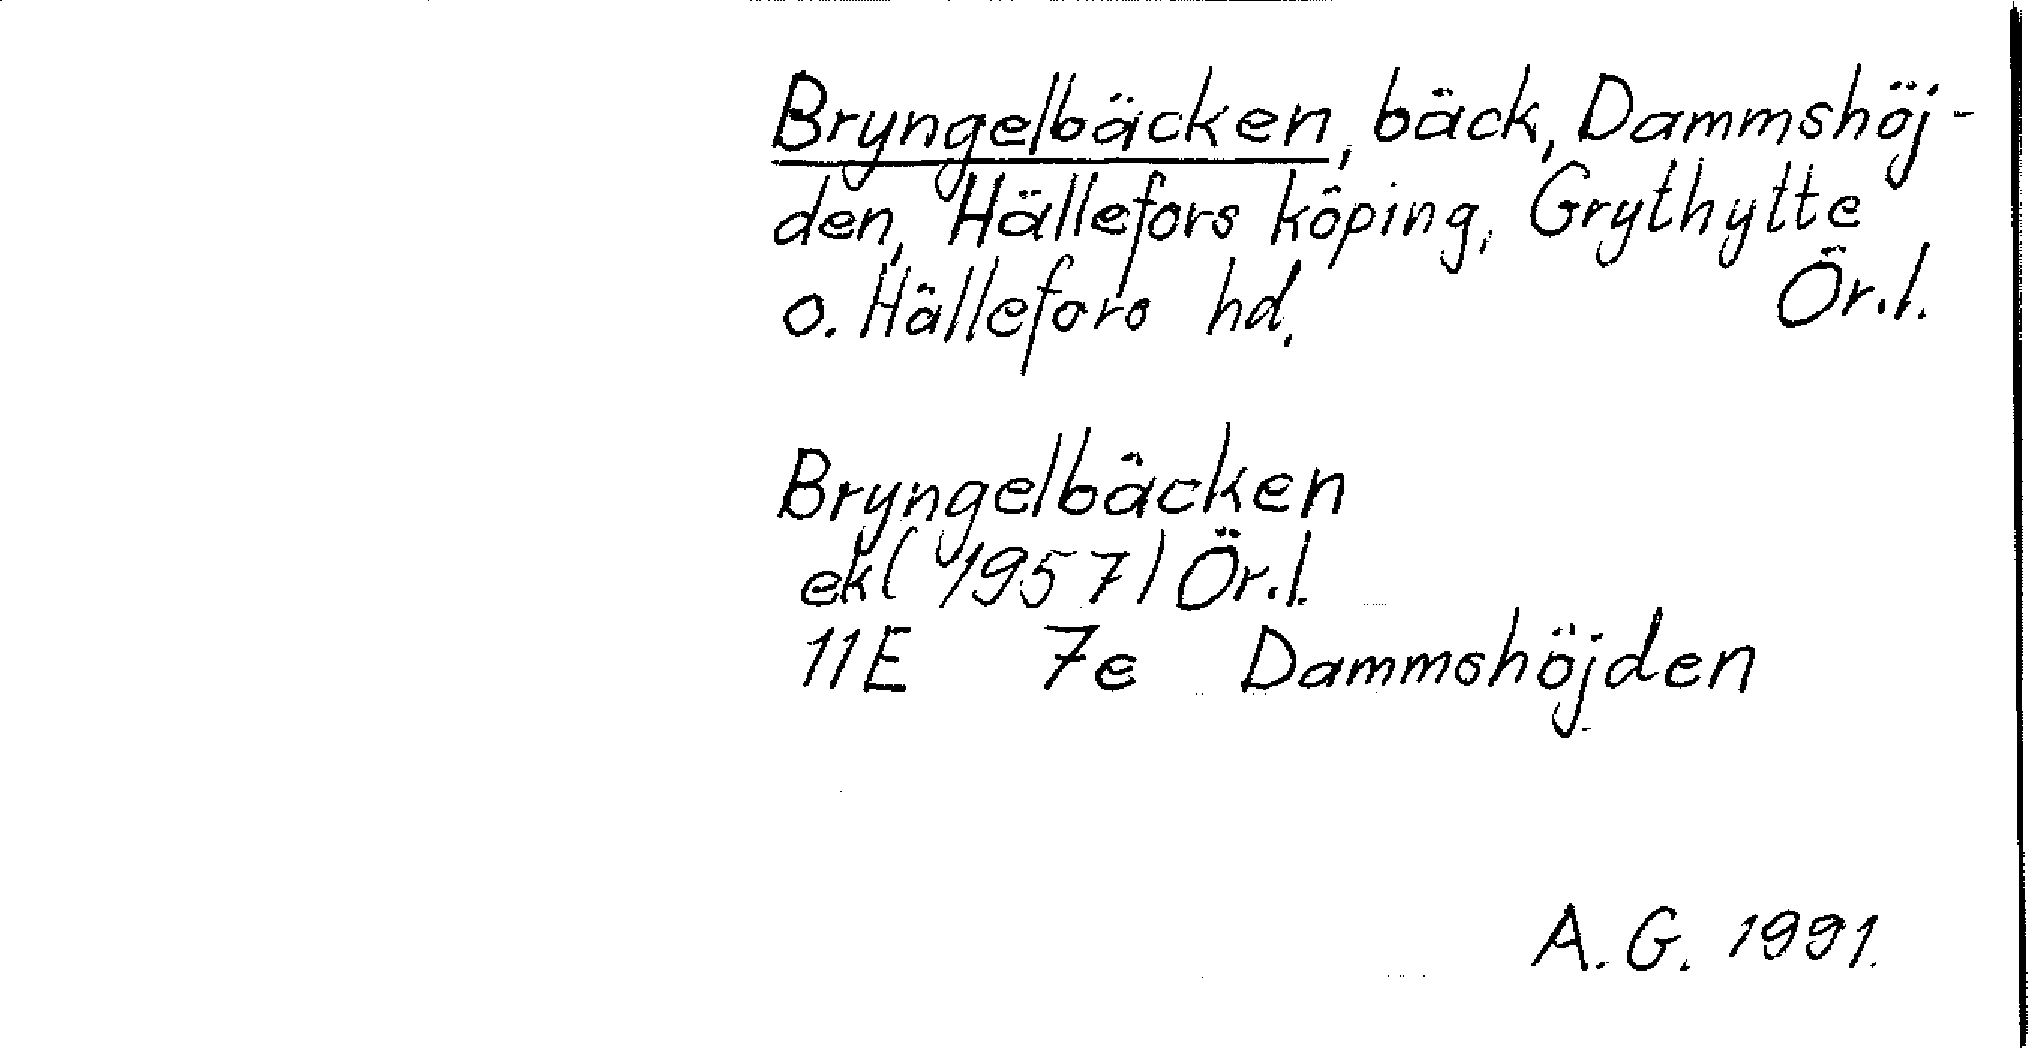 Bryngelbäcken, bäck, Dammshöj-
den, Hällefors köping, Grythytte
o. Hällefors hd. Ör.l.
Bryngelbäcken
ek (1957) Ör.l.
11E 7e Dammshöjden
A.G. 1991.